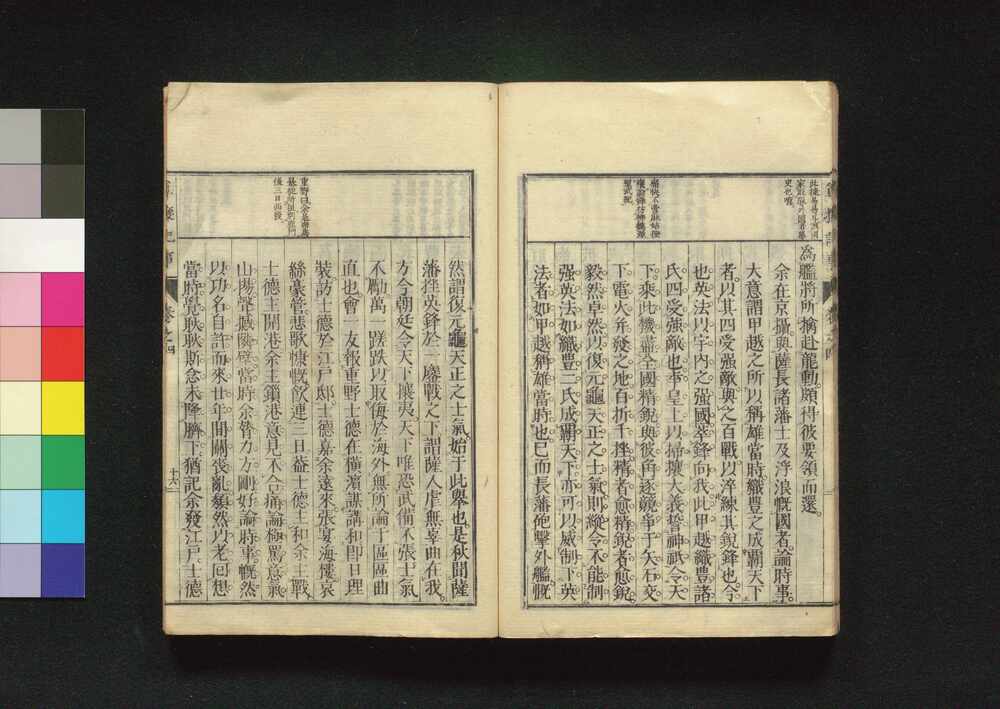 為艦將所擒赴龍動頗得彼要領而還
余在京攝與薩長諸藩士及浮浪慨國者論時事
大意謂甲越之所以稱雄當時織豐之成覇天下
者以其四受强敵與之百戰以淬練其銳鋒也今
也英法以宇内之强國萃鋒向我此甲越織豐諸
氏四受强敵也奉皇上以掃攘大義誓神祇令天
下乘此機盡全國精銳與彼角逐競爭于矢石交
下電火并發之地百折千挫精者愈精銳者愈銳
毅然卓然以復元龜天正之士氣則縱令不能制
强英法如織豐二氏成覇天下亦可以威制下英
法者如甲越稱雄當時也已而長藩砲擊外艦慨
然謂復元龜天正之士氣始于此舉也是秋聞薩
藩挫英鋒於一鏖戰之下謂薩人虐無辜曲在我
方今朝廷令天下攘夷天下唯恐武備不張士氣
不勵萬一蹉跌以取侮於海外無所論于區區曲
直也會一友報重野士德在橫濱謀講和即日理
裝訪士德於江戶邸士德嘉余遠來張宴海樓哀
絲豪管悲歌慷慨飲連三日益士德主和余主戰
士德主開港余主鎖港意見不合痛論極駡意氣
山揚聲戚隣壁當時余膂力方剛好論時事慨然
以功名自許而來廿年間關喪亂頹然以老回想
當時覺耿耿斯念未降臍下猶記余發江戶士德
卷之四
十六